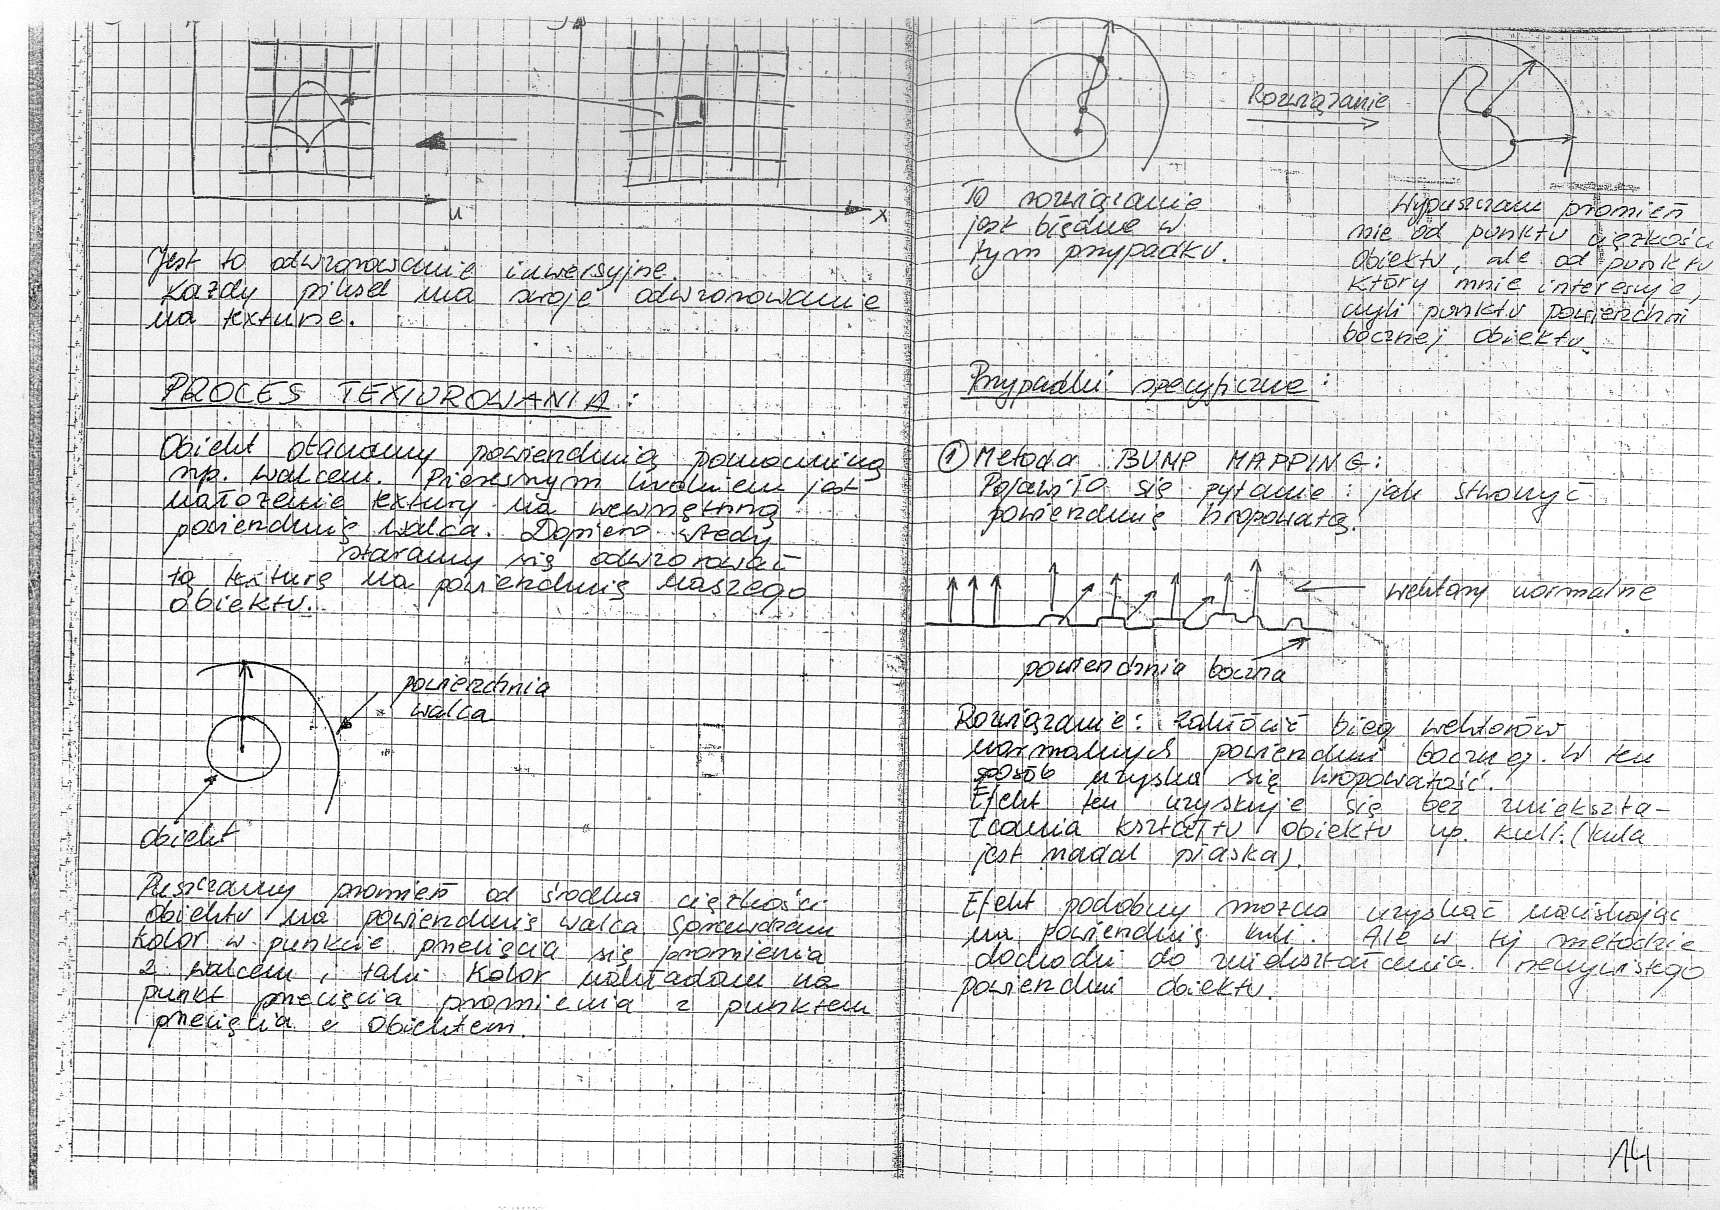 u
x
Jest to odwzorowanie inwersyjne.
Każdy piksel ma swoje odwzorowanie
na texturze.
PROCES TEXTUROWANIA:
Obiekt otaczamy powierzchnią pomocniczą
np. walcem. Pierwszym krokiem jest
nałożenie textury na wewnętrzną
powierzchnię walca. Dopiero wtedy
staramy się odwzorować
tą teksturę na powierzchnię naszego
obiektu.
powierzchnia
walca
obiekt
Puszczamy promień od środka ciężkości
obiektu na powierzchnię walca sprawdzam
kolor w punkcie przecięcia się promienia
z walcem, taki kolor nakładam na
punkt przecięcia promienia z punktem
przecięcia z obiektem.
Rozwiązanie
To rozwiązanie
jest błędne w
tym przypadku.
Wypuszczam promień
nie od punktu ciężkości
obiektu, ale od punktu
który mnie interesuje,
czyli punktu powierzchni
bocznej obiektu.
Przypadki specyficzne:
1 Metoda BUMP MAPPING:
Pojawiło się pytanie: jak stworzyć
powierzchnię chropowatą.
wektory normalne
powierzchnia boczna
Rozwiązanie: zakłócić bieg wektorów
normalnych powierzchni bocznej. W ten
sposób uzyska się chropowatość.
Efekt ten uzyskuje się bez zniekszta-
łcania kształtu obiektu np. kuli. (kula
jest nadal płaska).
Efekt podobny można uzyskać naciskając
na powierzchnię kuli. Ale w tej metodzie
dochodzi do zniekształcenia rzeczywistego
powierzchni obiektu.
14